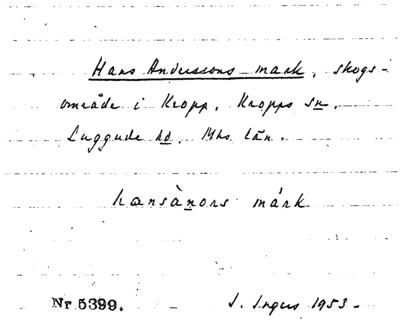 Hans Anderssons mark, skogs-
område i Kropp, Kropps sn,
Luggude hd. Mhs län.
hansànors márk
Nr 5399. I. Ingers 1953